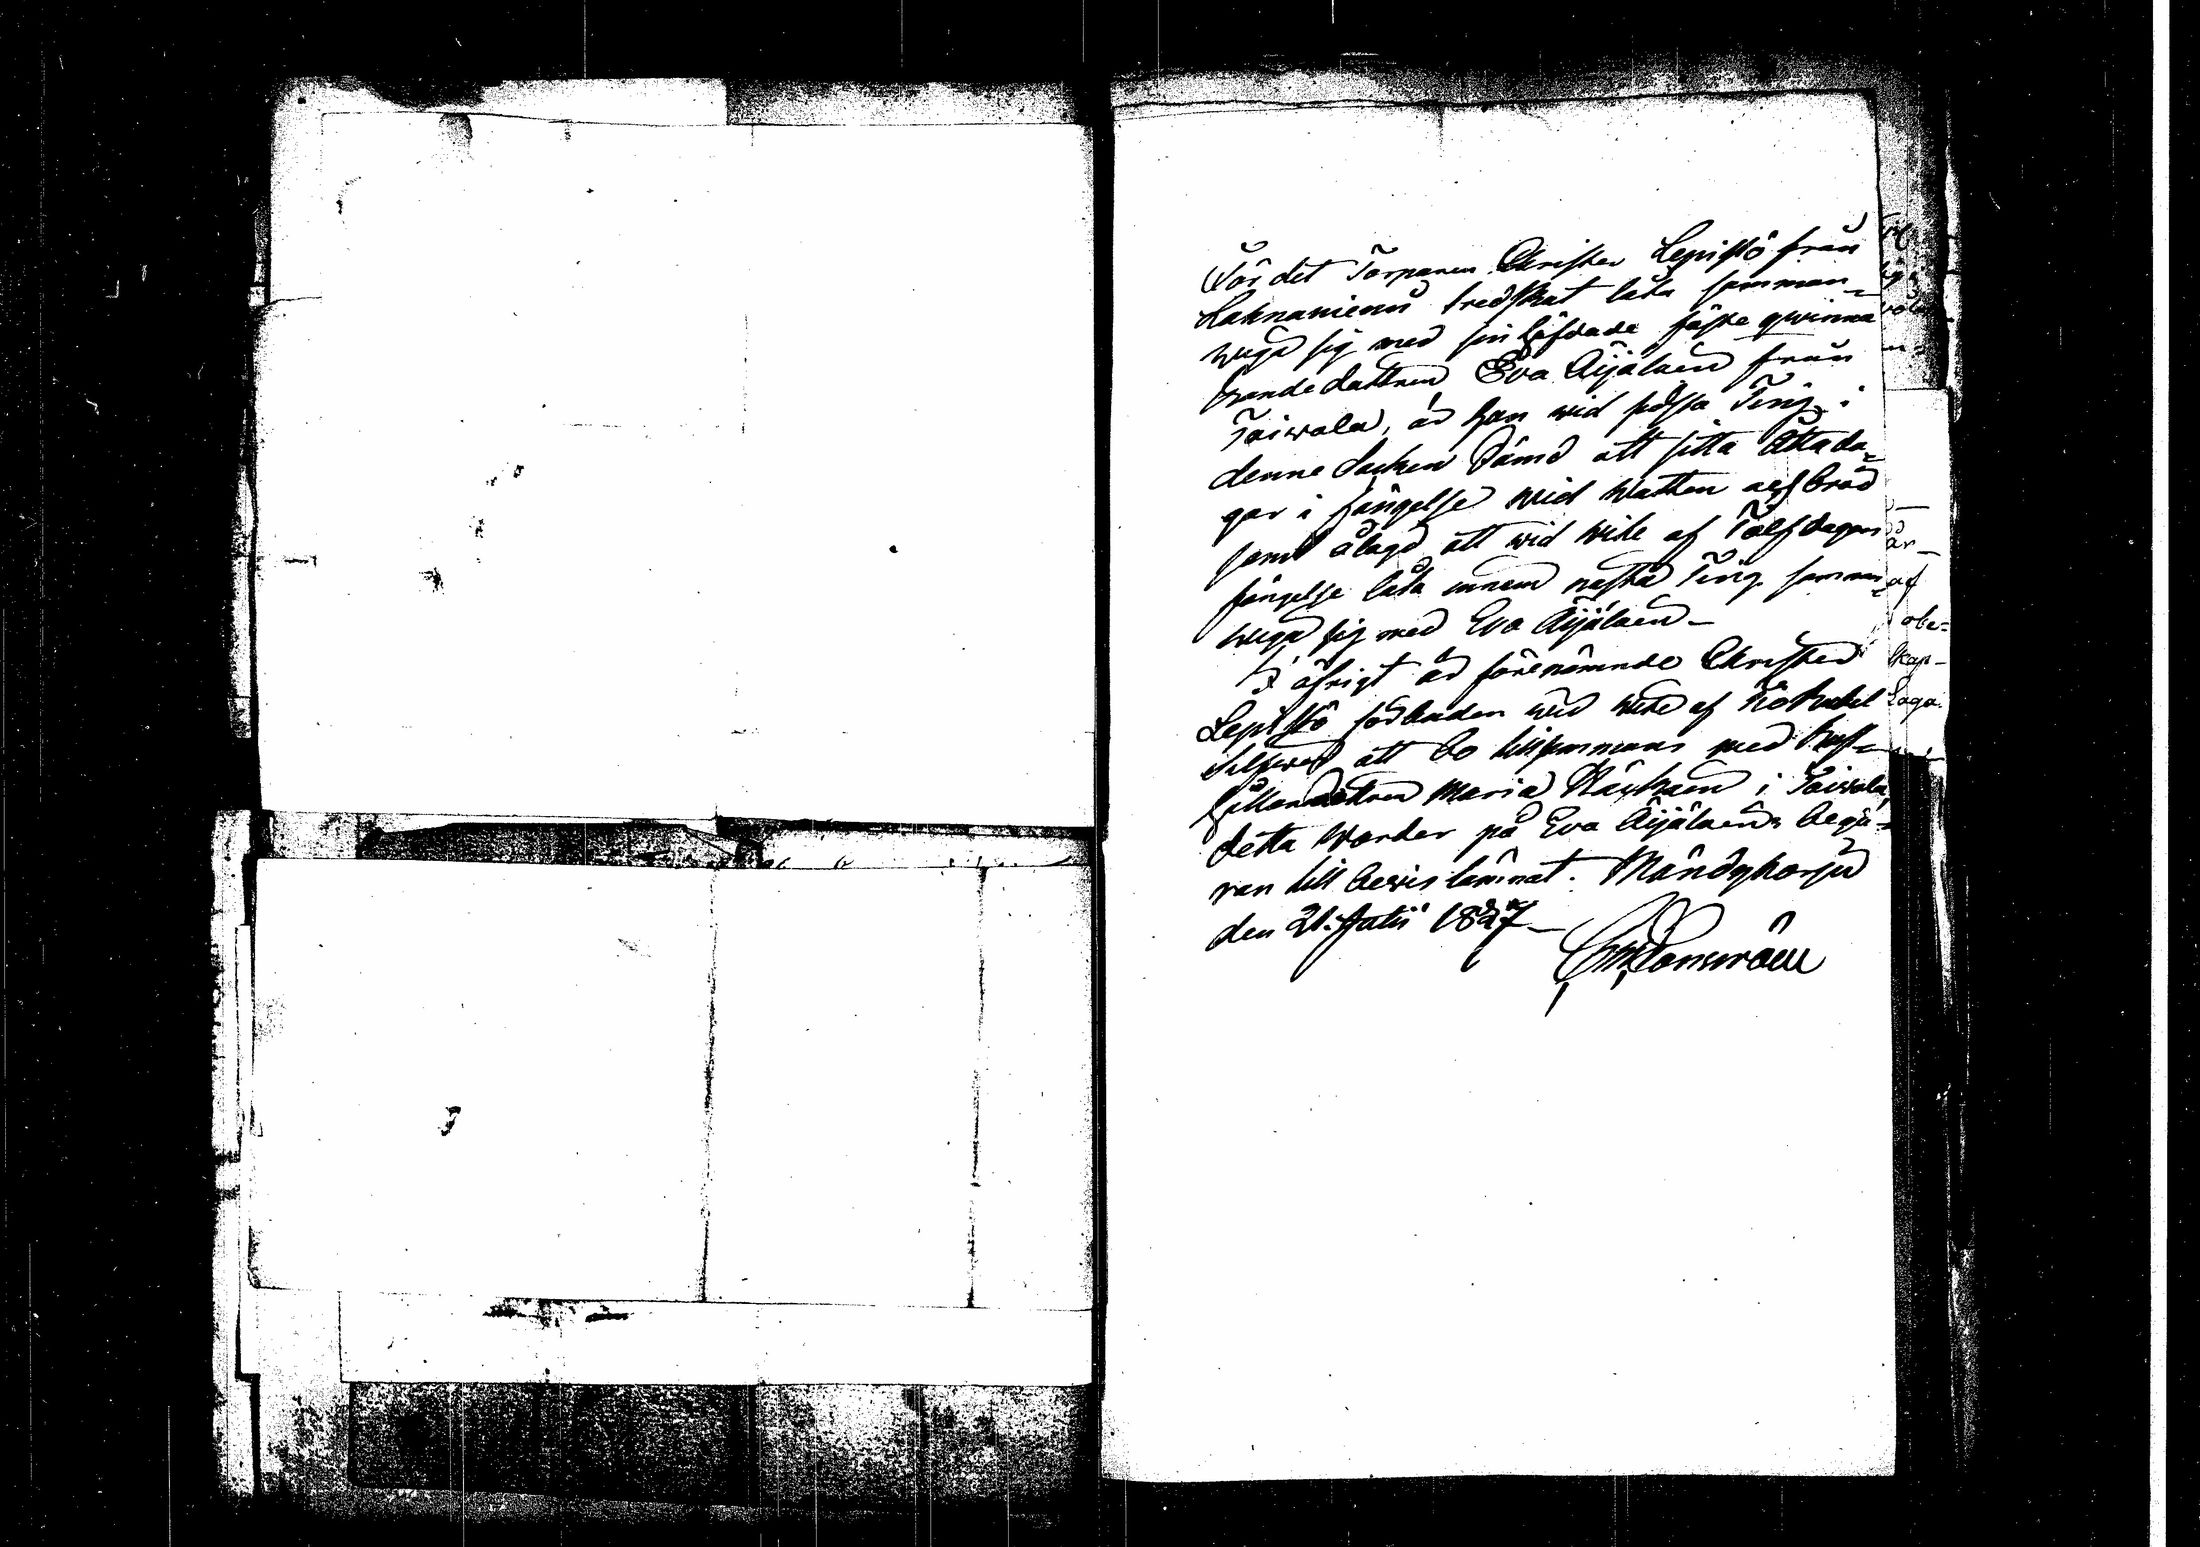 För det Torparen Christer Lepistö från
Lahnaniemi tredskat låta samman-
wiga sig med sin häfdade fäste qwinna
bondedottren Eva Äijälaen från
Taiwala, är han wid sidsta Ting i
denne Socken dömd att sitta Åtta da-
gar i fängelse wid watten och bröd
samt ålagd att wid wite af Tolf dagars
fängelse låta innan nästa Ting samman-
wiga sig med Eva Äijälaen-
I öfrigt är förenämnde Christer
Lepistö förbuden wid wite af Rubel
Silfwer att bo tillsammans med Inhys-
dottren Maria i Taiwala,
detta warder på Eva Äijälaens begä-
ran till bewis lämnat. Mändyharju
den 21. Julii 1827-
af
obe-
skap-
Laga